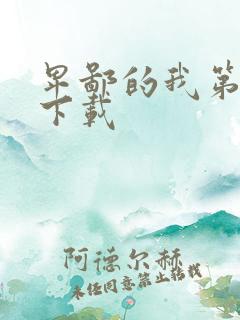 卑鄙的我第
下载
阿德尔赫
未经同意禁止转载